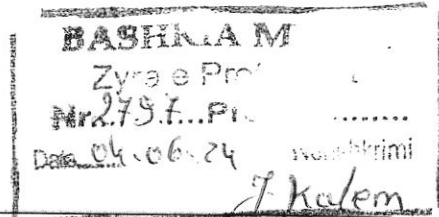 BASHKIA M
Zyra e Pr
Nr. 2797 Pr
Data 04.06.24 Nënshkrimi
J Kalem